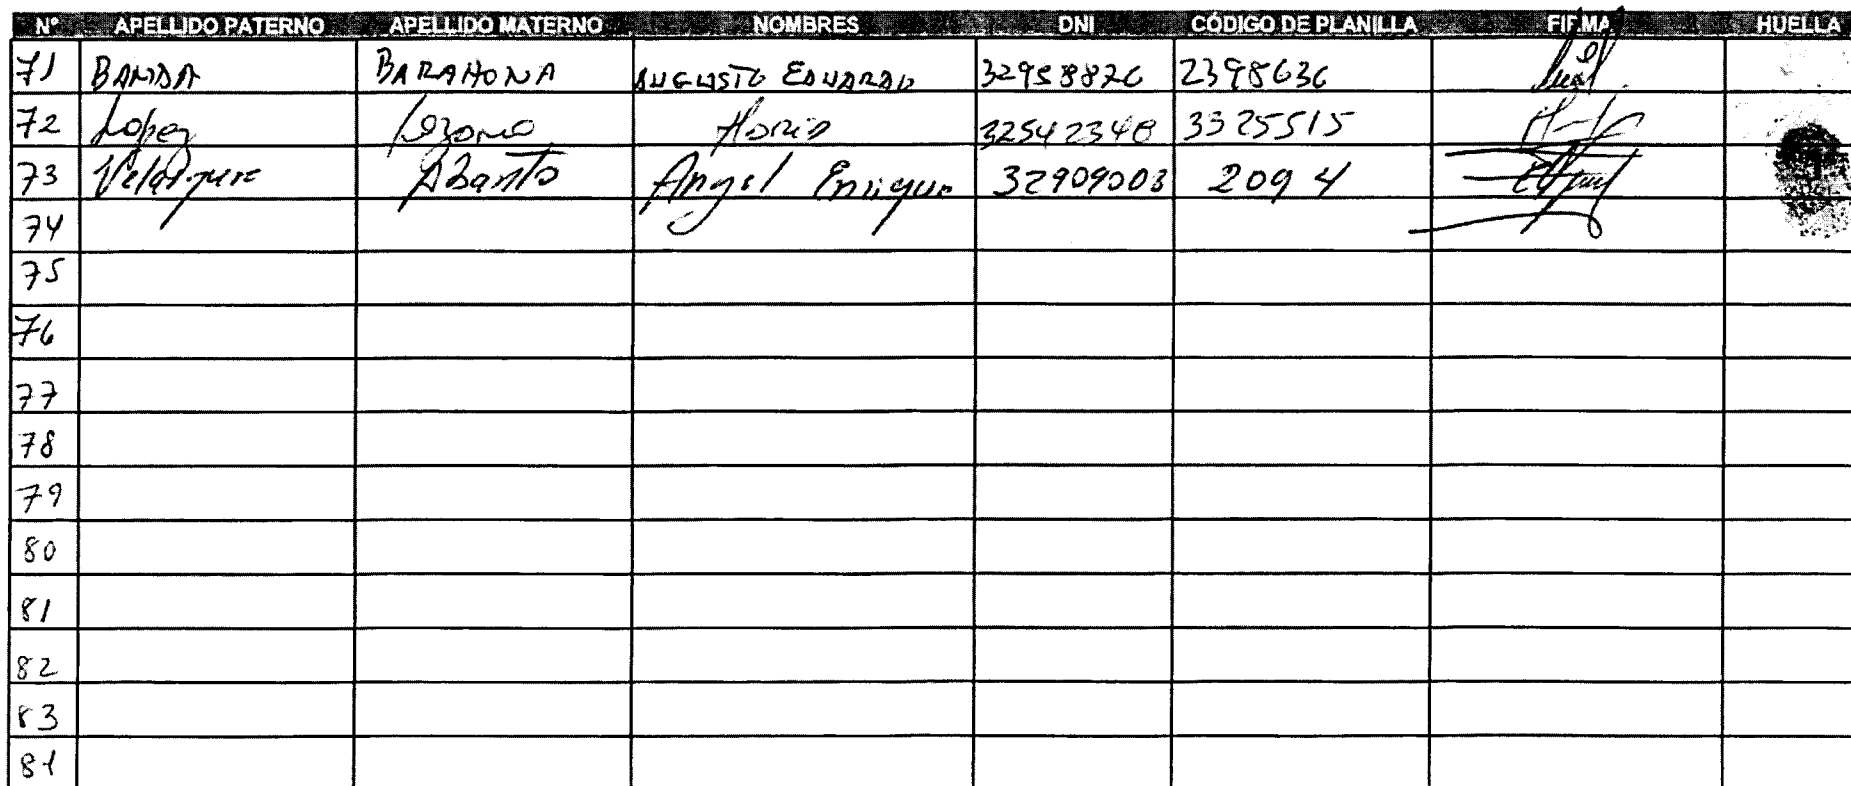 N° APELLIDO PATERNO APELLIDO MATERNO NOMBRES DNI CÓDIGO DE PLANILLA FIRMA HUELLA
71 BANDA BARAHONA AUGUSTO EDUARDO 32958826 2398636
72 Lopez Lezama 32542348 3325515
73 Velasquez Abanto Angel Enrique 32909003 2094
74
75
76
77
78
79
80
81
82
83
84